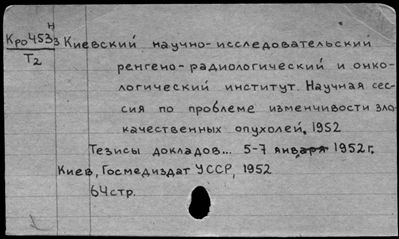 Н
Кро453з Киевский научно-исследовательский
Т2
ренгено-радиологический и онко-
логический институт. Научная сес-
сия по проблеме изменчивости зло-
качественных опухолей, 1952
Тезисы докладов... 5-7 января 1952 г.
Киев, Госмедиздат УССР, 1952
64 стр.